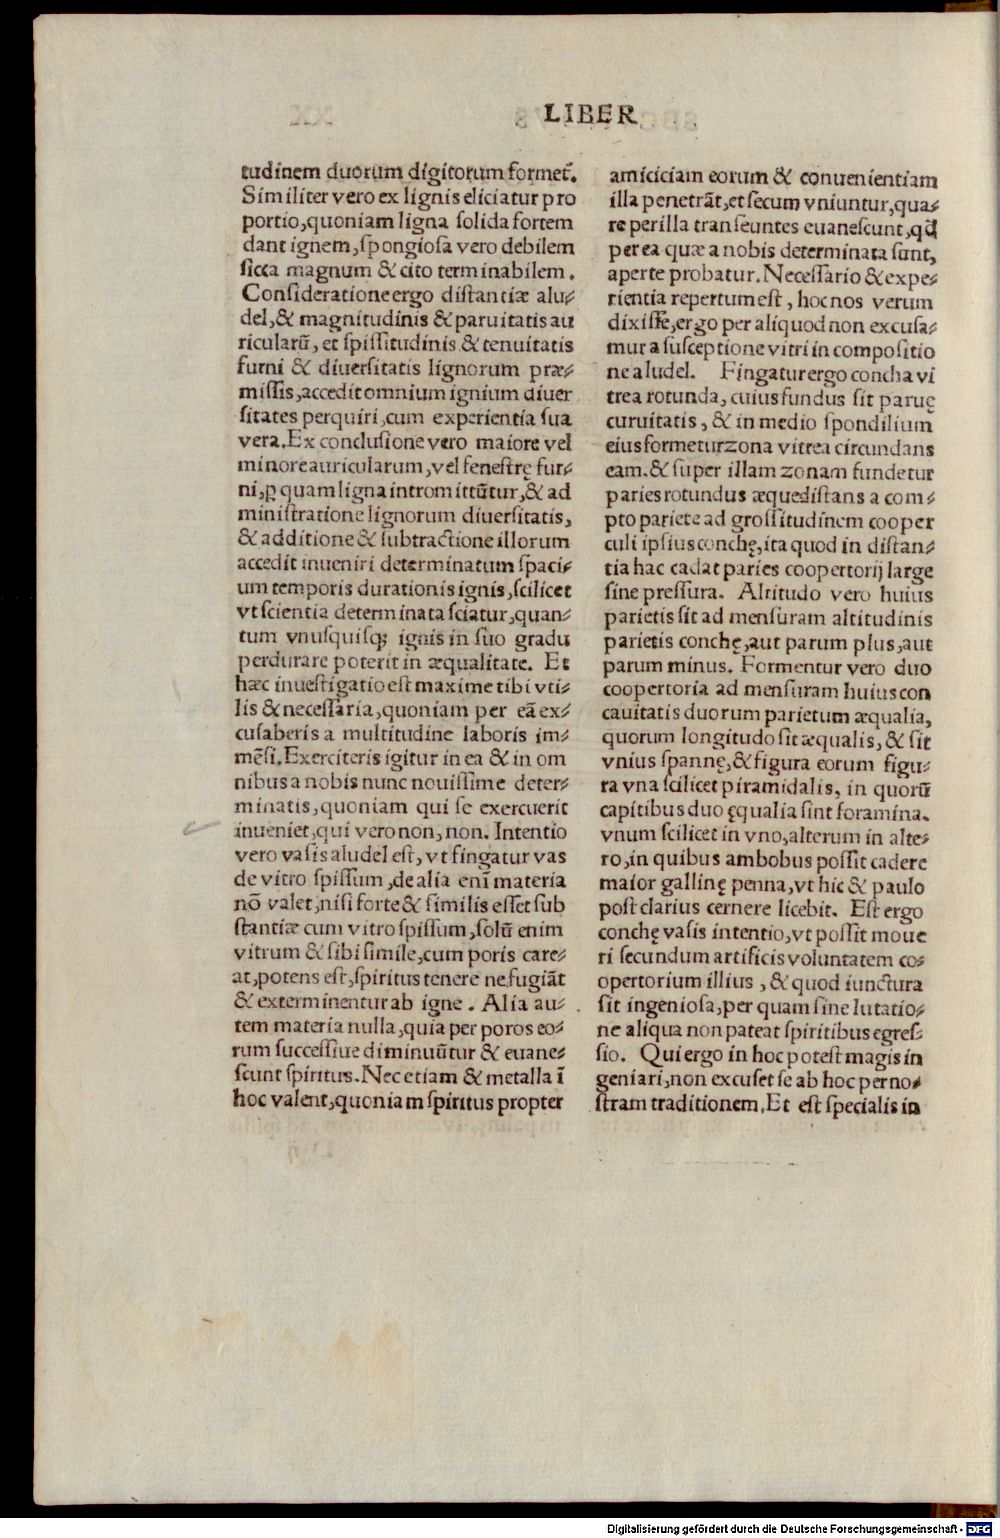 LIBER
tudinem duorum digitorum formet᷑.
Similiter vero ex lignis eliciatur pro
portio,quoniam ligna solida fortem
dant ignem,spongiosa vero debilem
sicca magnum & cito terminabilem.
Consideratione ergo distantiæ alu⸗
del,& magnitudinis & paruitatis au
ricularū, et spissitudinis & tenuitatis
furni & diuersitatis lignorum præ⸗
missis,accedit omnium ignium diuer
sitates perquiri,cum experientia sua
vera.Ex conclusione vero maiore vel
minore auricularum,vel fenestrę fur⸗
ni,ꝑ quam ligna intromittūtur,& ad
ministratione lignorum diuersitatis,
& additione & subtractione illorum
accedit inueniri determinatum spaci⸗
um temporis durationis ignis,scilicet
vt scientia determinata sciatur,quan⸗
tum vnusquisq; ignis in suo gradu
perdurare poterit in æqualitate. Et
hæc inuestigatio est maxime tibi vti⸗
lis & necessaria,quoniam per eā ex⸗
cusaberis a multitudine laboris im⸗
mēsi.Exerciteris igitur in ea & in om
nibus a nobis nunc nouissime deter⸗
minatis,quoniam qui se exercuerit
inueniet,qui vero non,non. Intentio
vero vasis aludel est, vt fingatur vas
de vitro spissum,de alia enī materia
nō valet,nisi forte & similis esset sub
stantiæ cum vitro spissum,solū enim
vitrum & sibi simile,cum poris care⸗
at,potens est,spiritus tenere ne fugiāt
& exterminentur ab igne. Alia au⸗
tem materia nulla,quia per poros eo⸗
rum successiue diminuūtur & euane⸗
scunt spiritus.Nec etiam & metalla ī
hoc valent,quoniam spiritus propter
amiciciam eorum & conuenientiam
illa penetrāt,et secum vniuntur,qua⸗
re per illa transeuntes euanescunt,qđ
per ea quæ a nobis determinata sunt,
aperte probatur.Necessario & expe⸗
rientia repertum est, hoc nos verum
dixisse,ergo per aliquod non excusa⸗
mur a susceptione vitri in compositio
ne aludel. Fingatur ergo concha vi
trea rotunda, cuius fundus sit paruę
curuitatis, & in medio spondilium
eius formetur zona vitrea circundans
eam.& super illam zonam fundetur
paries rotundus æquedistans a com⸗
pto pariete ad grossitudinem cooper
culi ipsius conchę,ita quod in distan⸗
tia hac cadat paries coopertorij large
sine pressura. Altitudo vero huius
parietis sit ad mensuram altitudinis
parietis conchę,aut parum plus,aut
parum minus. Formentur vero duo
coopertoria ad mensuram huius con
cauitatis duorum parietum æqualia,
quorum longitudo sit æqualis,& sit
vnius spannę,& figura eorum figu⸗
ra vna scilicet piramidalis, in quorū
capitibus duo ęqualia sint foramina.
vnum scilicet in vno,alterum in alte⸗
ro,in quibus ambobus possit cadere
maior gallinę penna,vt hic & paulo
post clarius cernere licebit. Est ergo
conchę vasis intentio,vt possit moue
ri secundum artificis voluntatem co⸗
opertorium illius, & quod iunctura
sit ingeniosa,per quam sine lutatio⸗
ne aliqua non pateat spiritibus egres⸗
sio. Qui ergo in hoc potest magis in
geniari,non excuset se ab hoc per no⸗
stram traditionem.Et est specialis in
Digitalisierung gefördert durch die Deutsche Forschungsgemeinschaft - DFG